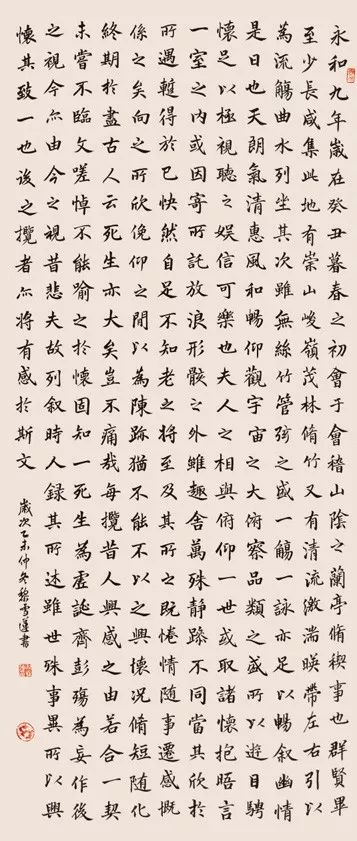 永和九年歲在癸丑暮春之初會于會稽山陰之蘭亭脩禊事也群賢畢
至少長咸集此地有崇山峻嶺茂林脩竹又有清流激湍暎帶左右引以
為流觴曲水列坐其次雖無絲竹管弦之盛一觴一詠亦足以暢叙幽情
是日也天朗氣清惠風和暢仰觀宇宙之大俯察品類之盛所以遊目騁
懷足以極視聽之娛信可樂也夫人之相與俯仰一世或取諸懷抱晤言
一室之内或因寄所託放浪形骸之外雖趣舍萬殊靜躁不同當其欣於
所遇蹔得於己快然自足不知老之將至及其所之既惓情隨事遷感慨
係之矣向之所欣俛仰之閒以為陳跡猶不能不以之興懷況脩短隨化
終期於盡古人云死生亦大矣豈不痛哉每攬昔人興感之由若合一契
未嘗不臨文嗟悼不能喻之於懷固知一死生為虛誕齊彭殤為妄作後
之視今亦由今之視昔悲夫故列叙時人録其所述雖世殊事異所以興
懷其致一也後之攬者亦將有感於斯文
歲次乙未仲冬黎雪蓮書